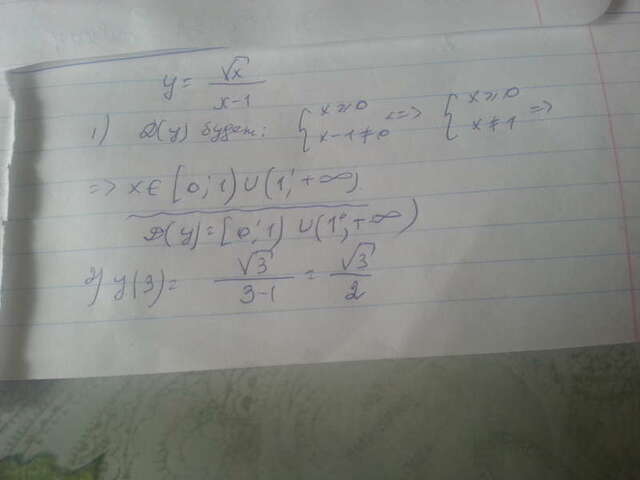 y = √x / x-1
1) D(y) будет: { x ≥ 0 x-1 ≠ 0 <=> { x ≥ 0 x ≠ 1 =>
=> x ∈ [0; 1) ∪ (1; +∞)
D(y) = [0; 1) ∪ (1; +∞)
2) y(3) = √3 / 3-1 = √3 / 2